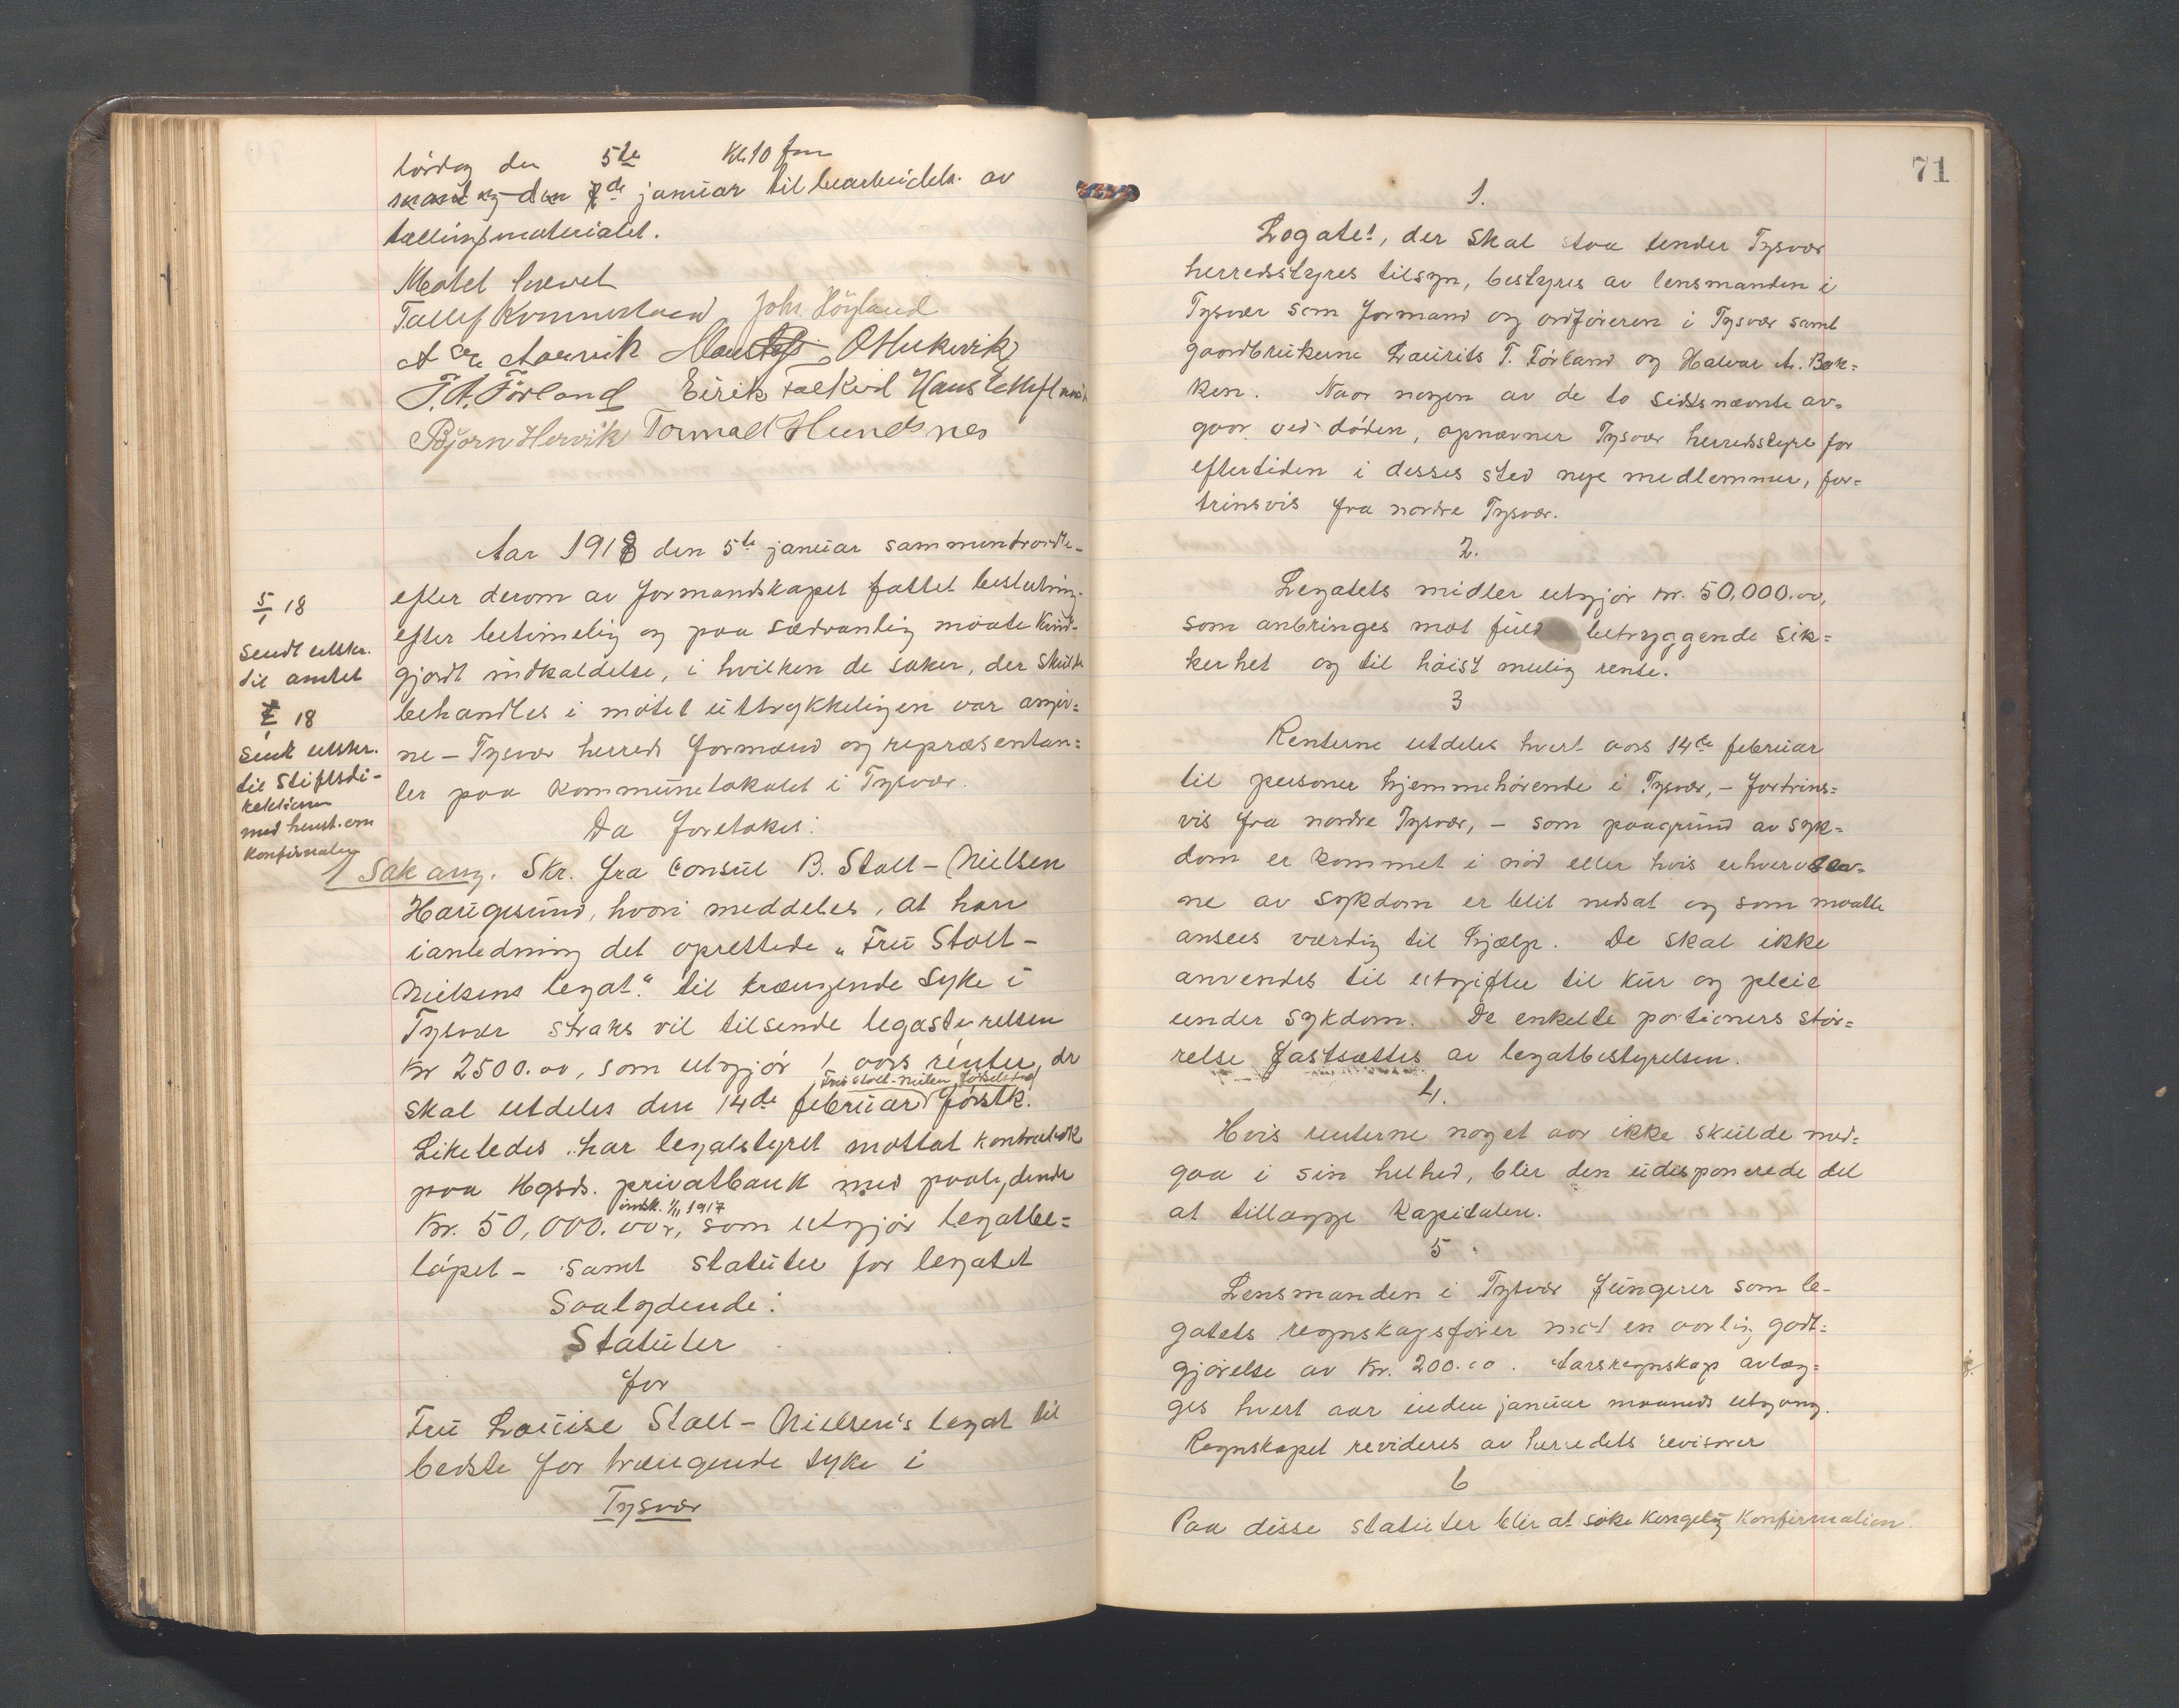 lördag den 5te Kl. 10 fm
mandag den 7de januar til bearbeidels. av
tællingsmaterialet.
Tallef Kommedal Johs. Höyland
Aarvik
T. A. Förland Eirik Falkeid Hans
Bjørn Hervik Tormod Hundsnes
Aar 1918 den 5te januar sammentraadte
efter derom av formandskapet fattet beslutning
efter betimelig og paa sedvanlig maate kund-
gjort indkaldelse, i hvilken de saker, der skulde
behandles i møtet uttrykkeligen var angiv=
ne – Tysvær herreds formænd og repræsentan=
ter paa kommunelokalet i Tysvær.
Da foretokes:
5/1 18
Sendt utskr.
til amtet
18
Sent utskr.
til Stiftsdi-
rektionen
med henst. om
konfirmation
1 Sak ang. Skr. fra consul B. Stolt-Nielsen
Haugesund, hvori meddeles, at han
i anledning det oprettede „Fru Stolt-
Nielsens legat" til trængende Syke i
Tysvær straks vil tilsende legatstyrelsen
Kr 2500.00, som utgjør 1 aars renter, der
Fru Stolt-Nielsen fødselsdag
skal utdeles den 14de februar førstk.
Likeledes har legatstyret mottat kontrabok
paa Hgsds. privatbank med paalydende
indsk. 1/11 1917
Kr. 50,000.00, som utgjør legatbe=
løpet – samt statuter for legatet
Saalydende:
Statuter
for
Fru Louise Stolt-Nielsen's legat til
bedste for trængende syke i
Tysvær
71
1.
Legatet, der skal staa under Tysvær
herredsstyres tilsyn, bestyres av lensmanden i
Tysvær som formand og ordføreren i Tysvær samt
gaardbrukerne Laurits T. Førland og Halvar A. Bak=
ken. Naar nogen av de to sidstnævnte av=
gaar ved døden, opnævner Tysvær herredsstyre for
eftertiden i desses sted nye medlemmer, for=
trinsvis fra nordre Tysvær.
2.
Legatets midler utgjør kr. 50,000.00,
som anbringes mot fuld betryggende sik=
kerhet og til høist mulig rente.
3
Renterne utdeles hvert aars 14de februar
til personer hjemmehørende i Tysvær, – fortrins=
vis fra nordre Tysvær, – som paagrund av syk=
dom er kommet i nød eller hvis erhvervsev=
ne av sykdom er blit nedsat og som maatte
ansees værdig til hjælp. De skal ikke
anvendes til utgifter til kur og pleie
under sykdom. De enkelte portioners stør=
relse fastsættes av legatbestyrelsen.
4.
Hvis renterne noget aar ikke skulde med=
gaa i sin helhed, blir den udisponerede del
at tillægge kapitalen.
5.
Lensmanden i Tysvær fungerer som le-
gatets regnskapsfører mot en aarlig godt=
gjørelse av Kr. 200.00. Aarsregnskap avlæg=
ges hvert aar inden januar maaneds utgang.
Regnskapet revideres av herredets revisorer
6
Paa disse statuter blir at søke kongelig Konfirmation.